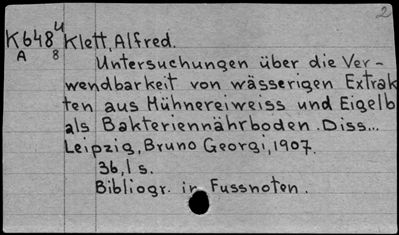 2
K648u Klett, Alfred.
A 8
Untersuchungen über die Ver-
wendbarkeit von wässerigen Extrak
ten aus Hühnereiweiss und Eigelb
als Bakteriennährboden. Diss...
Leipzig, Bruno Georgi, 1907.
36,1 s.
Bibliogr. in Fussnoten.